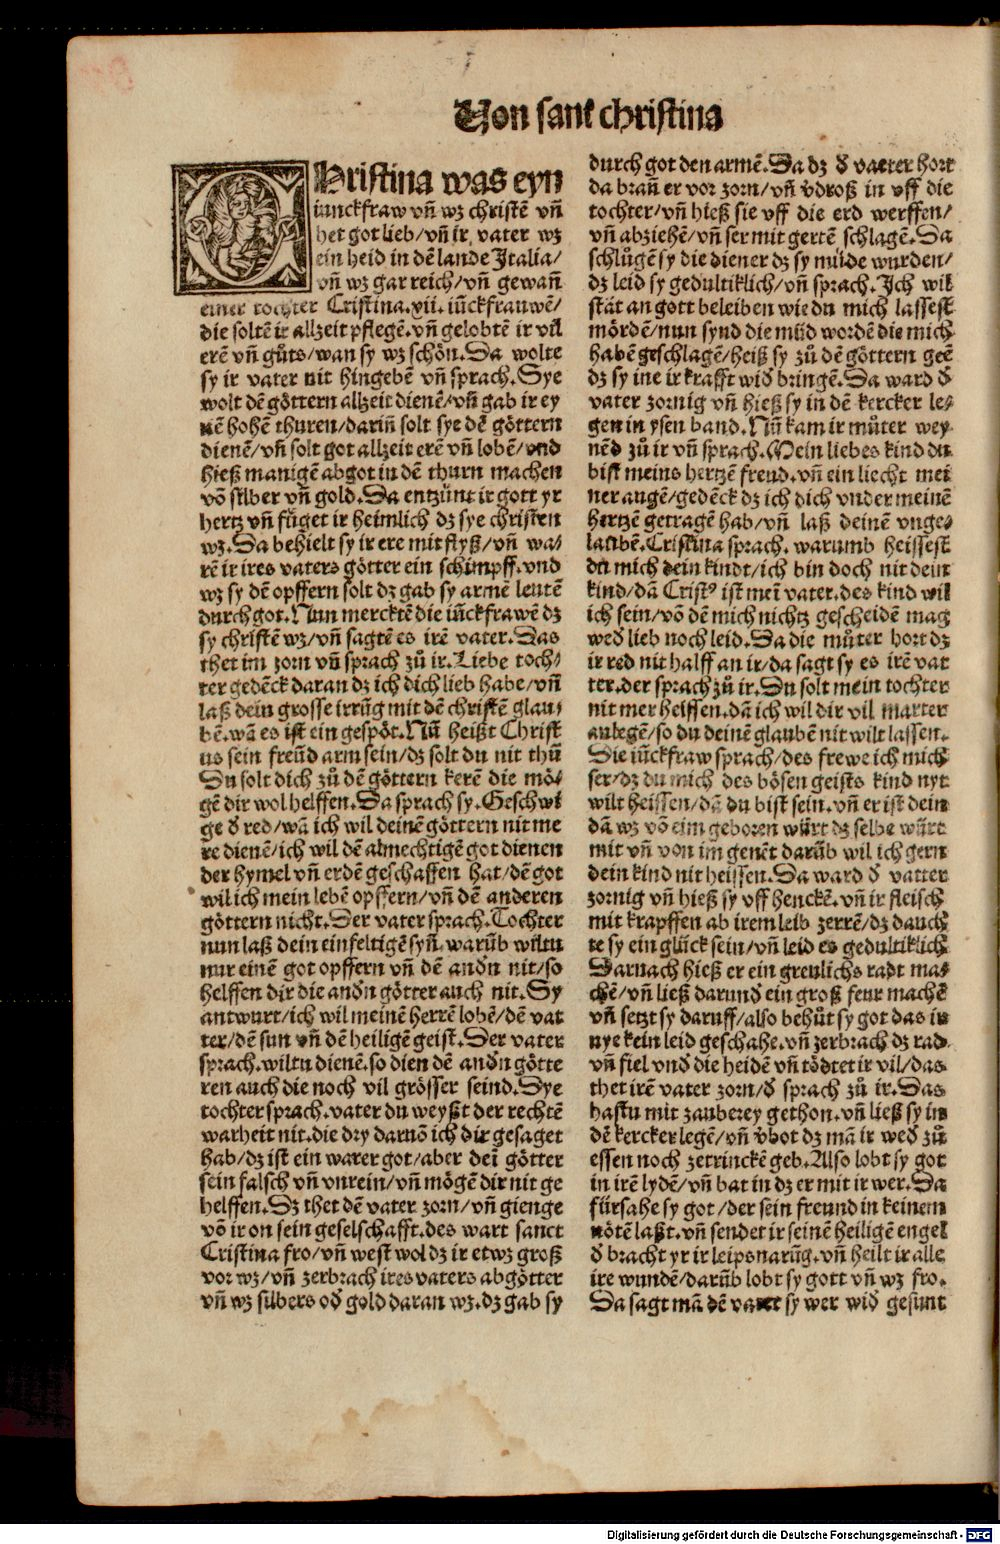 Von sant christina
CHristina was eyn
iunckfraw vñ wz christē vñ
het got lieb/vñ ir vater wz
ein heid in dē lande Italia/
vñ wz gar reich/vñ gewañ
einer tochter Cristina.xii.iūckfrauwē/
die soltē ir allzeit pflegē.vñ gelobtē ir vil
erē vñ gůts/wan sy wz schön.Da wolte
sy ir vater nit hingebē vñ sprach.Sye
wolt dē göttern allzeit dienē/vñ gab ir ey
nē hohē thuren/dariñ solt sye dē göttern
dienē/vñ solt got allzeit erē vñ lobē/vnd
hieß manigē abgot in dē thurn machen
võ silber vñ gold.Da entzünt ir gott yr
hertz vñ füget ir heimlich dz sye christen
wz.Da behielt sy ir ere mit flyß/vñ wa⸗
rē ir ires vaters götter ein schimpff.vnd
wz sy dē opffern solt dz gab sy armē leutē
durch got.Nun mercktē die iūckfrawē dz
sy christē wz/vñ sagtē es irē vater.Das
thet im zorn vñ sprach zů ir.Liebe toch⸗
ter gedēck daran dz ich dich lieb habe/vñ
laß dein grosse irrūg mit dē christē glau⸗
bē.wā es ist ein gespöt.Nū heißt Christ
us sein freūd arm sein/dz solt du nit thū
Du solt dich zů dē göttern kerē die mö⸗
gē dir wol helffen.Da sprach sy.Geschwi
ge đ red/wā ich wil deinē göttern nit me
re dienē/ich wil dē almechtigē got dienen
der hymel vñ erdē geschaffen hat/dē got
wil ich mein lebē opffern/vñ dē anderen
göttern nicht.Der vater sprach.Tochter
nun laß dein einfeltigē syñ.warūb wiltu
nur einē got opffern vñ dē anđn nit/so
helffen dir die anđn götter auch nit.Sy
antwurt/ich wil meinē herrē lobē/dē vat
ter/dē sun vñ dē heiligē geist.Der vater
sprach.wiltu dienē.so dien dē anđn götte
ren auch die noch vil grösser seind.Dye
tochter sprach.vater du weyßt der rechtē
warheit nit.die dry daruõ ich dir gesaget
hab/dz ist ein warer got/aber dei götter
sein falsch vñ vnrein/vñ mögē dir nit ge
helffen.Dz thet dē vater zorn/vñ gienge
võ ir on sein geselschafft.des wart sanct
Cristina fro/vñ west wol dz ir etwz groß
vor wz/vñ zerbrach ires vaters abgötter
vñ wz silbers ođ gold daran wz.dz gab sy
durch got den armē.Da dz đ vatter hort
da brañ er vor zorn/vñ vđroß in vff die
tochter/vñ hieß sie vff die erd werffen/
vñ abziehē/vñ ser mit gertē schlagē.Da
schlůgē sy die diener dz sy müde wurden/
dz leid sy gedultiklich/vñ sprach.Ich wil
stät an gott beleiben wie du mich lassest
mördē/nun synd die müd wordē die mich
habē geschlagē/heiß sy zů dē göttern geē
dz sy ine ir krafft wiđ bringē.Da ward đ
vater zornig vñ hieß sy in dē kercker le⸗
gen in ysen band.Nū kam ir můter wey⸗
nēd zů ir vñ sprach.Mein liebes kind du
bist meins hertzē freud.vñ ein liecht mei
ner augē/gedēck dz ich dich vnder meinē
hertzē getragē hab/vñ laß deinē vnge⸗
laubē.Cristina sprach.warumb heissest
du mich dein kindt/ich bin doch nit dein
kind/dā Cristꝰ ist mei vater.des kind wil
ich sein/võ dē mich nichtz gescheidē mag
weđ lieb noch leid.Da die můter hort dz
ir red nit halff an ir/da sagt sy es irē vat
ter.der sprach zů ir.Du solt mein tochter
nit mer heissen.dā ich wil dir vil marter
anlegē/so du deinē glaubē nit wilt lassen.
Die iūckfraw sprach/des frewe ich mich
ser/dz du mich des bösen geists kind nyt
wilt heissen/dā du bist sein.vñ er ist dein
dā wz võ eim geboren würt dz selbe würt
mit vñ von im genēt darūb wil ich gern
dein kind nit heissen.Da ward đ vatter
zornig vñ hieß sy vff henckē.vñ ir fleisch
mit krapffen ab irem leib zerrē/dz dauch
te sy ein glück sein/vñ leid es gedultiklich
Darnach hieß er ein greulichs radt ma⸗
chē/vñ ließ darunđ ein groß feur machē
vñ setzt sy daruff/also behůt sy got das in
nye kein leid geschahe.vñ zerbrach dz rad.
vñ fiel vnđ die heidē vñ tödtet ir vil/das
thet irē vater zorn/đ sprach zů ir.Das
hastu mit zauberey gethon.vñ ließ sy in
dē kercker legē/vñ vbot dz mā ir weđ zů
essen noch zetrinckē geb.Also lobt sy got
in irē lydē/vñ bat in dz er mit ir wer.Da
fürsahe sy got/der sein freund in keinem
nötē laßt.vñ sendet ir seinē heiligē engel
đ bracht yr ir leipsnarūg.vñ heilt ir alle
ire wundē/darūb lobt sy gott vñ wz fro.
Da sagt mā dē vatter sy wer wiđ gesunt
Digitalisierung gefördert durch die Deutsche Forschungsgemeinschaft - DFG